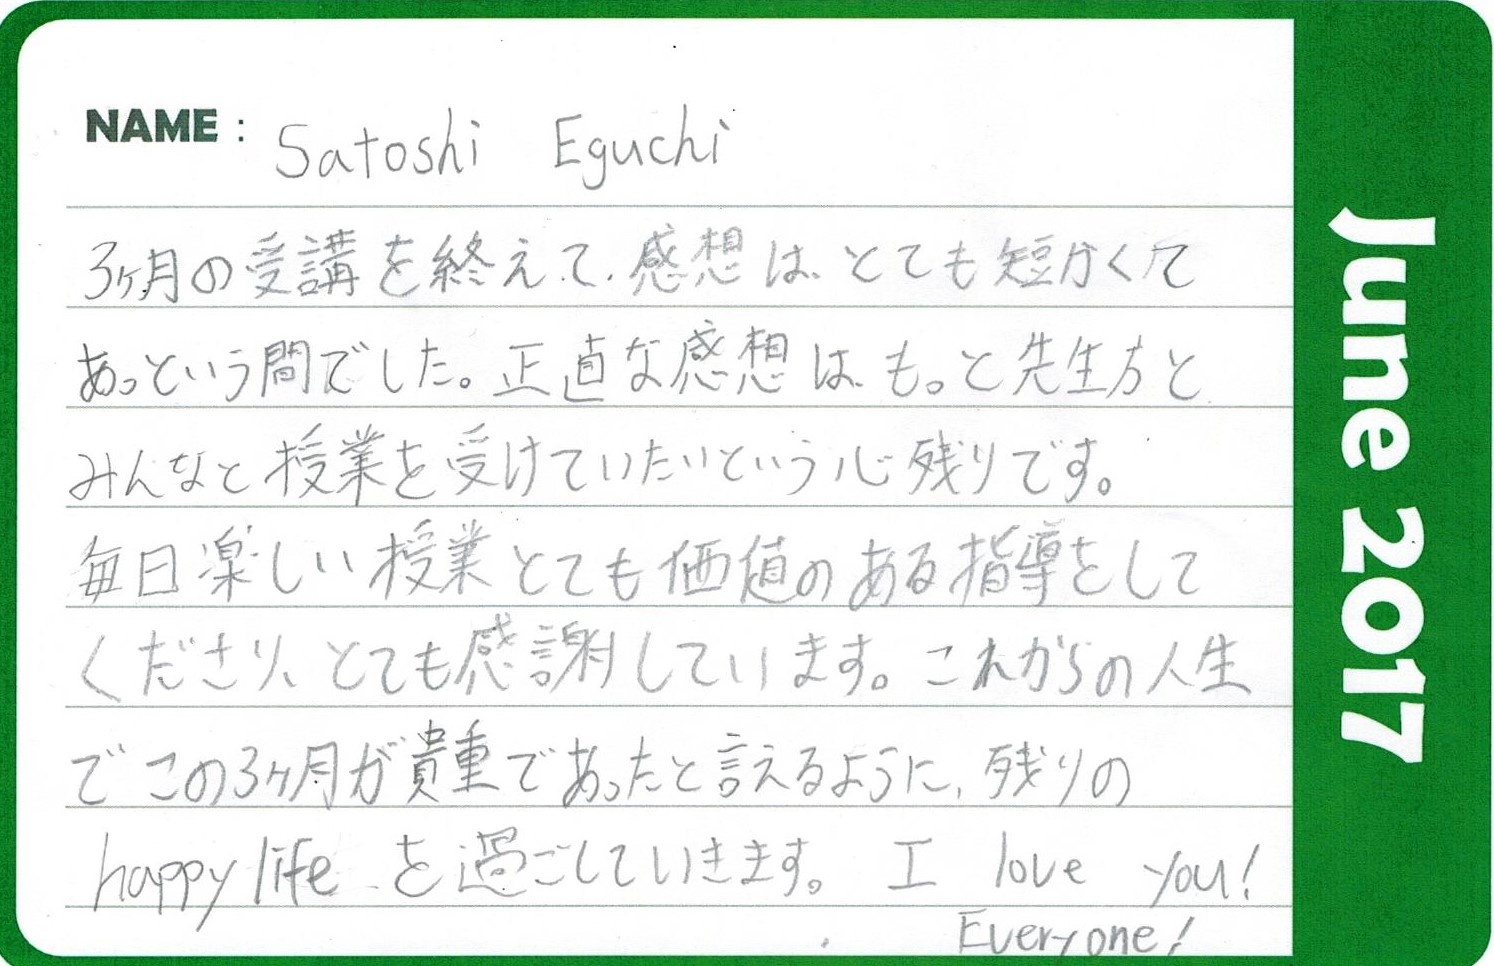 NAME : Satoshi Eguchi
3ヶ月の受講を終えて、感想は、とても短かくて
あっという間でした。正直な感想は、もっと先生方と
みんなと授業を受けていたいという心残りです。
毎日楽しい授業とても価値のある指導をして
くださり、とても感謝しています。これからの人生
でこの3ヶ月が貴重であったと言えるように、残りの
happy life を過ごしていきます。 I love you!
Everyone!
June 2017